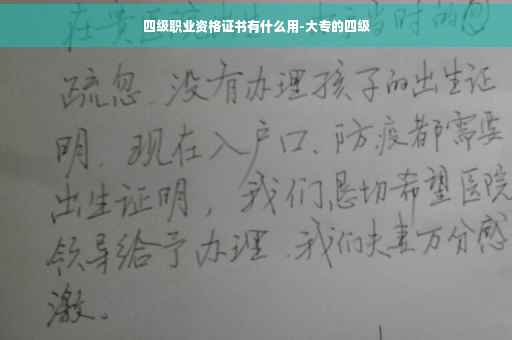 四级职业资格证书有什么用-大专的四级
疏忽、没有办理孩子的出生证
明、现在入户口、防疫都需要
出生证明，我们恳切希望医院
领导给予办理、我们夫妻万分感
激。